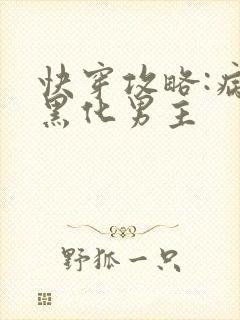 快穿攻略:病
黑化男主
野狐一只